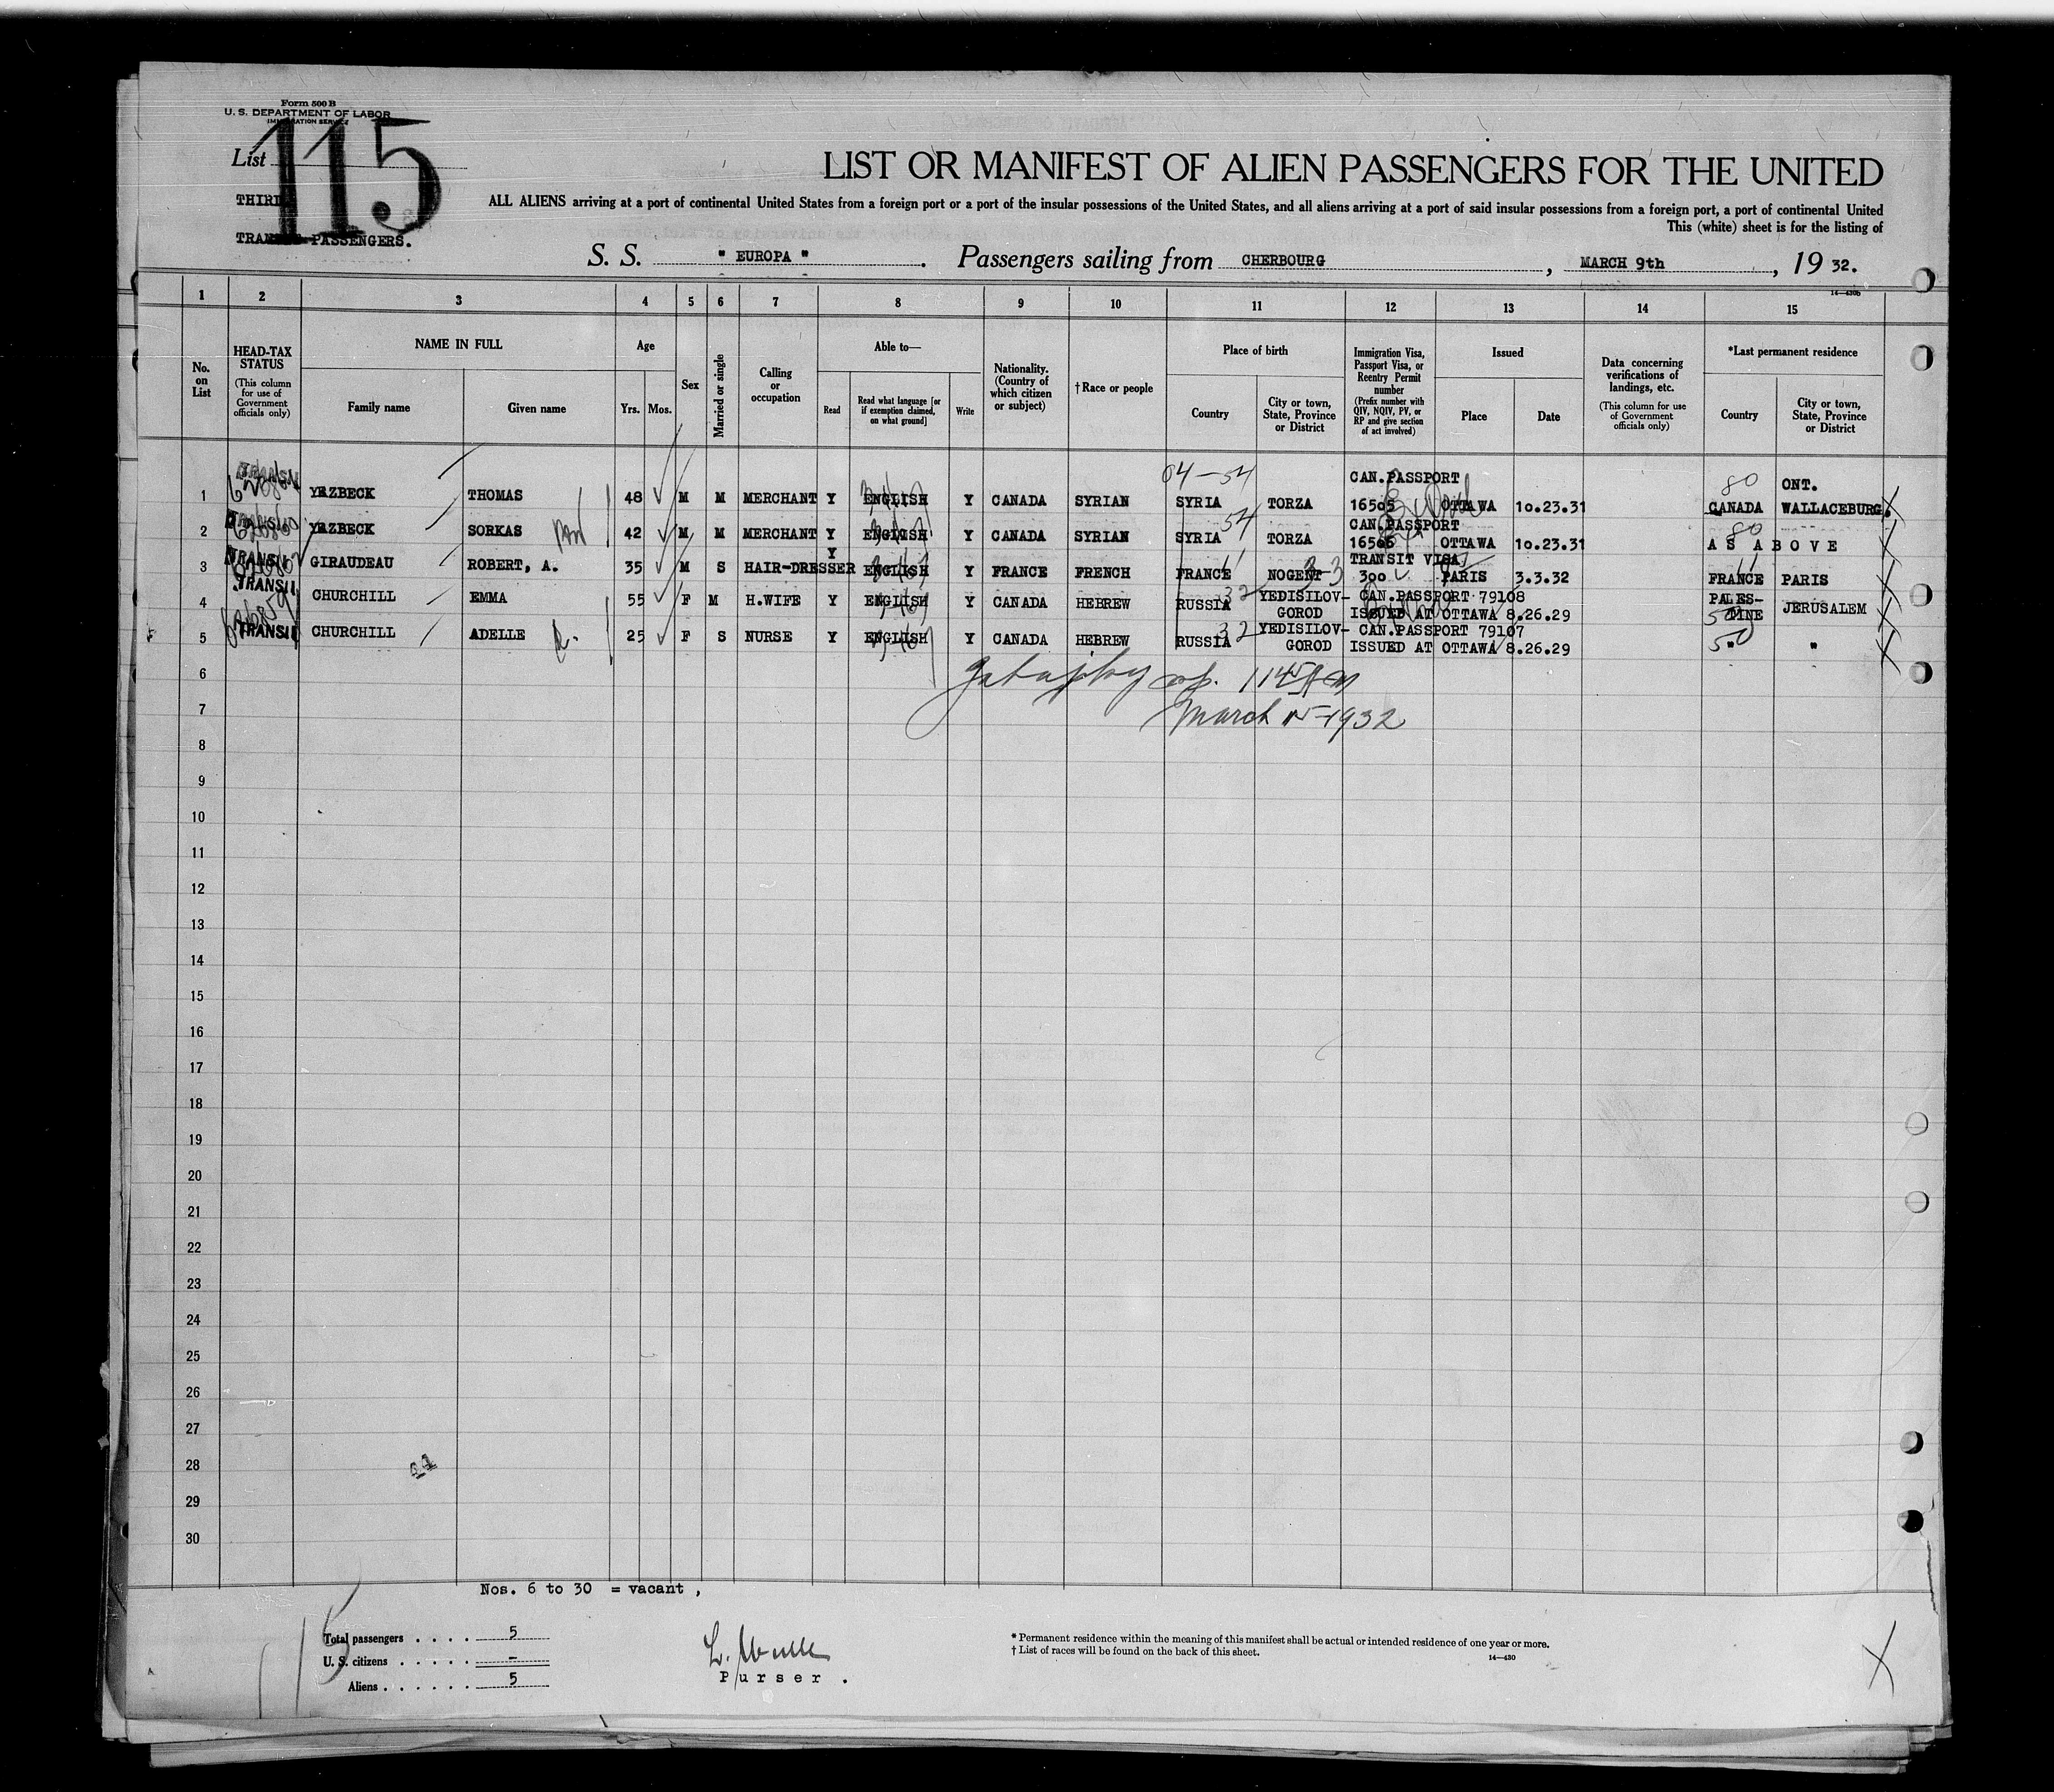 Form 500 B
U. S. DEPARTMENT OF LABOR
IMMIGRATION SERVICE
List 115
THIRD
TRANSIT PASSENGERS.
LIST OR MANIFEST OF ALIEN PASSENGERS FOR THE UNITED
ALL ALIENS arriving at a port of continental United States from a foreign port or a port of the insular possessions of the United States, and all aliens arriving at a port of said insular possessions from a foreign port, a port of continental United
This (white) sheet is for the listing of
S. S. " EUROPA " . Passengers sailing from CHERBOURG , MARCH 9th , 19 32.
14—430b
1 2 3 4 5 6 7 8 9 10 11 12 13 14 15
No. on List
HEAD-TAX STATUS
(This column for use of Government officials only)
NAME IN FULL
Family name Given name
Age
Yrs. Mos.
Sex
Married or single
Calling or occupation
Able to—
Read
Read what language [or if exemption claimed, on what ground]
Write
Nationality. (Country of which citizen or subject)
† Race or people
Place of birth
Country
City or town, State, Province or District
Immigration Visa, Passport Visa, or Reentry Permit number
(Prefix number with QIV, NQIV, PV, or RP and give section of act involved)
Issued
Place Date
Data concerning verifications of landings, etc.
(This column for use of Government officials only)
*Last permanent residence
Country
City or town, State, Province or District
04-54
CAN.PASSPORT 80 ONT.
1 YAZBECK THOMAS 48 M M MERCHANT Y ENGLISH Y CANADA SYRIAN SYRIA TORZA 16505 OTTAWA 10.23.31 CANADA WALLACEBURG.
54 CAN.PASSPORT 80
2 YAZBECK SORKAS 42 M M MERCHANT Y ENGLISH Y CANADA SYRIAN SYRIA TORZA 16506 OTTAWA 10.23.31 AS ABOVE
TRANSIT VISA
3 TRANSIT GIRAUDEAU ROBERT, A. 35 M S HAIR-DRESSER Y ENGLISH Y FRANCE FRENCH FRANCE NOGENT 300 PARIS 3.3.32 FRANCE PARIS
4 TRANSIT CHURCHILL EMMA 55 F M H.WIFE Y ENGLISH Y CANADA HEBREW RUSSIA 32 YEDISILOV-GOROD CAN.PASSPORT 79108 ISSUED AT OTTAWA 8.26.29 PALES-TINE JERUSALEM
5 TRANSIT CHURCHILL ADELLE 25 F S NURSE Y ENGLISH Y CANADA HEBREW RUSSIA 32 YEDISILOV-GOROD CAN.PASSPORT 79107 ISSUED AT OTTAWA 8.26.29 50 " "
6
March 15-1932
7
8
9
10
11
12
13
14
15
16
17
18
19
20
21
22
23
24
25
26
27
28
29
30
Nos. 6 to 30 = vacant ,
115
Total passengers . . . . 5
U. S. citizens . . . . . –
Aliens . . . . . . 5
Purser .
* Permanent residence within the meaning of this manifest shall be actual or intended residence of one year or more.
† List of races will be found on the back of this sheet.
14—430